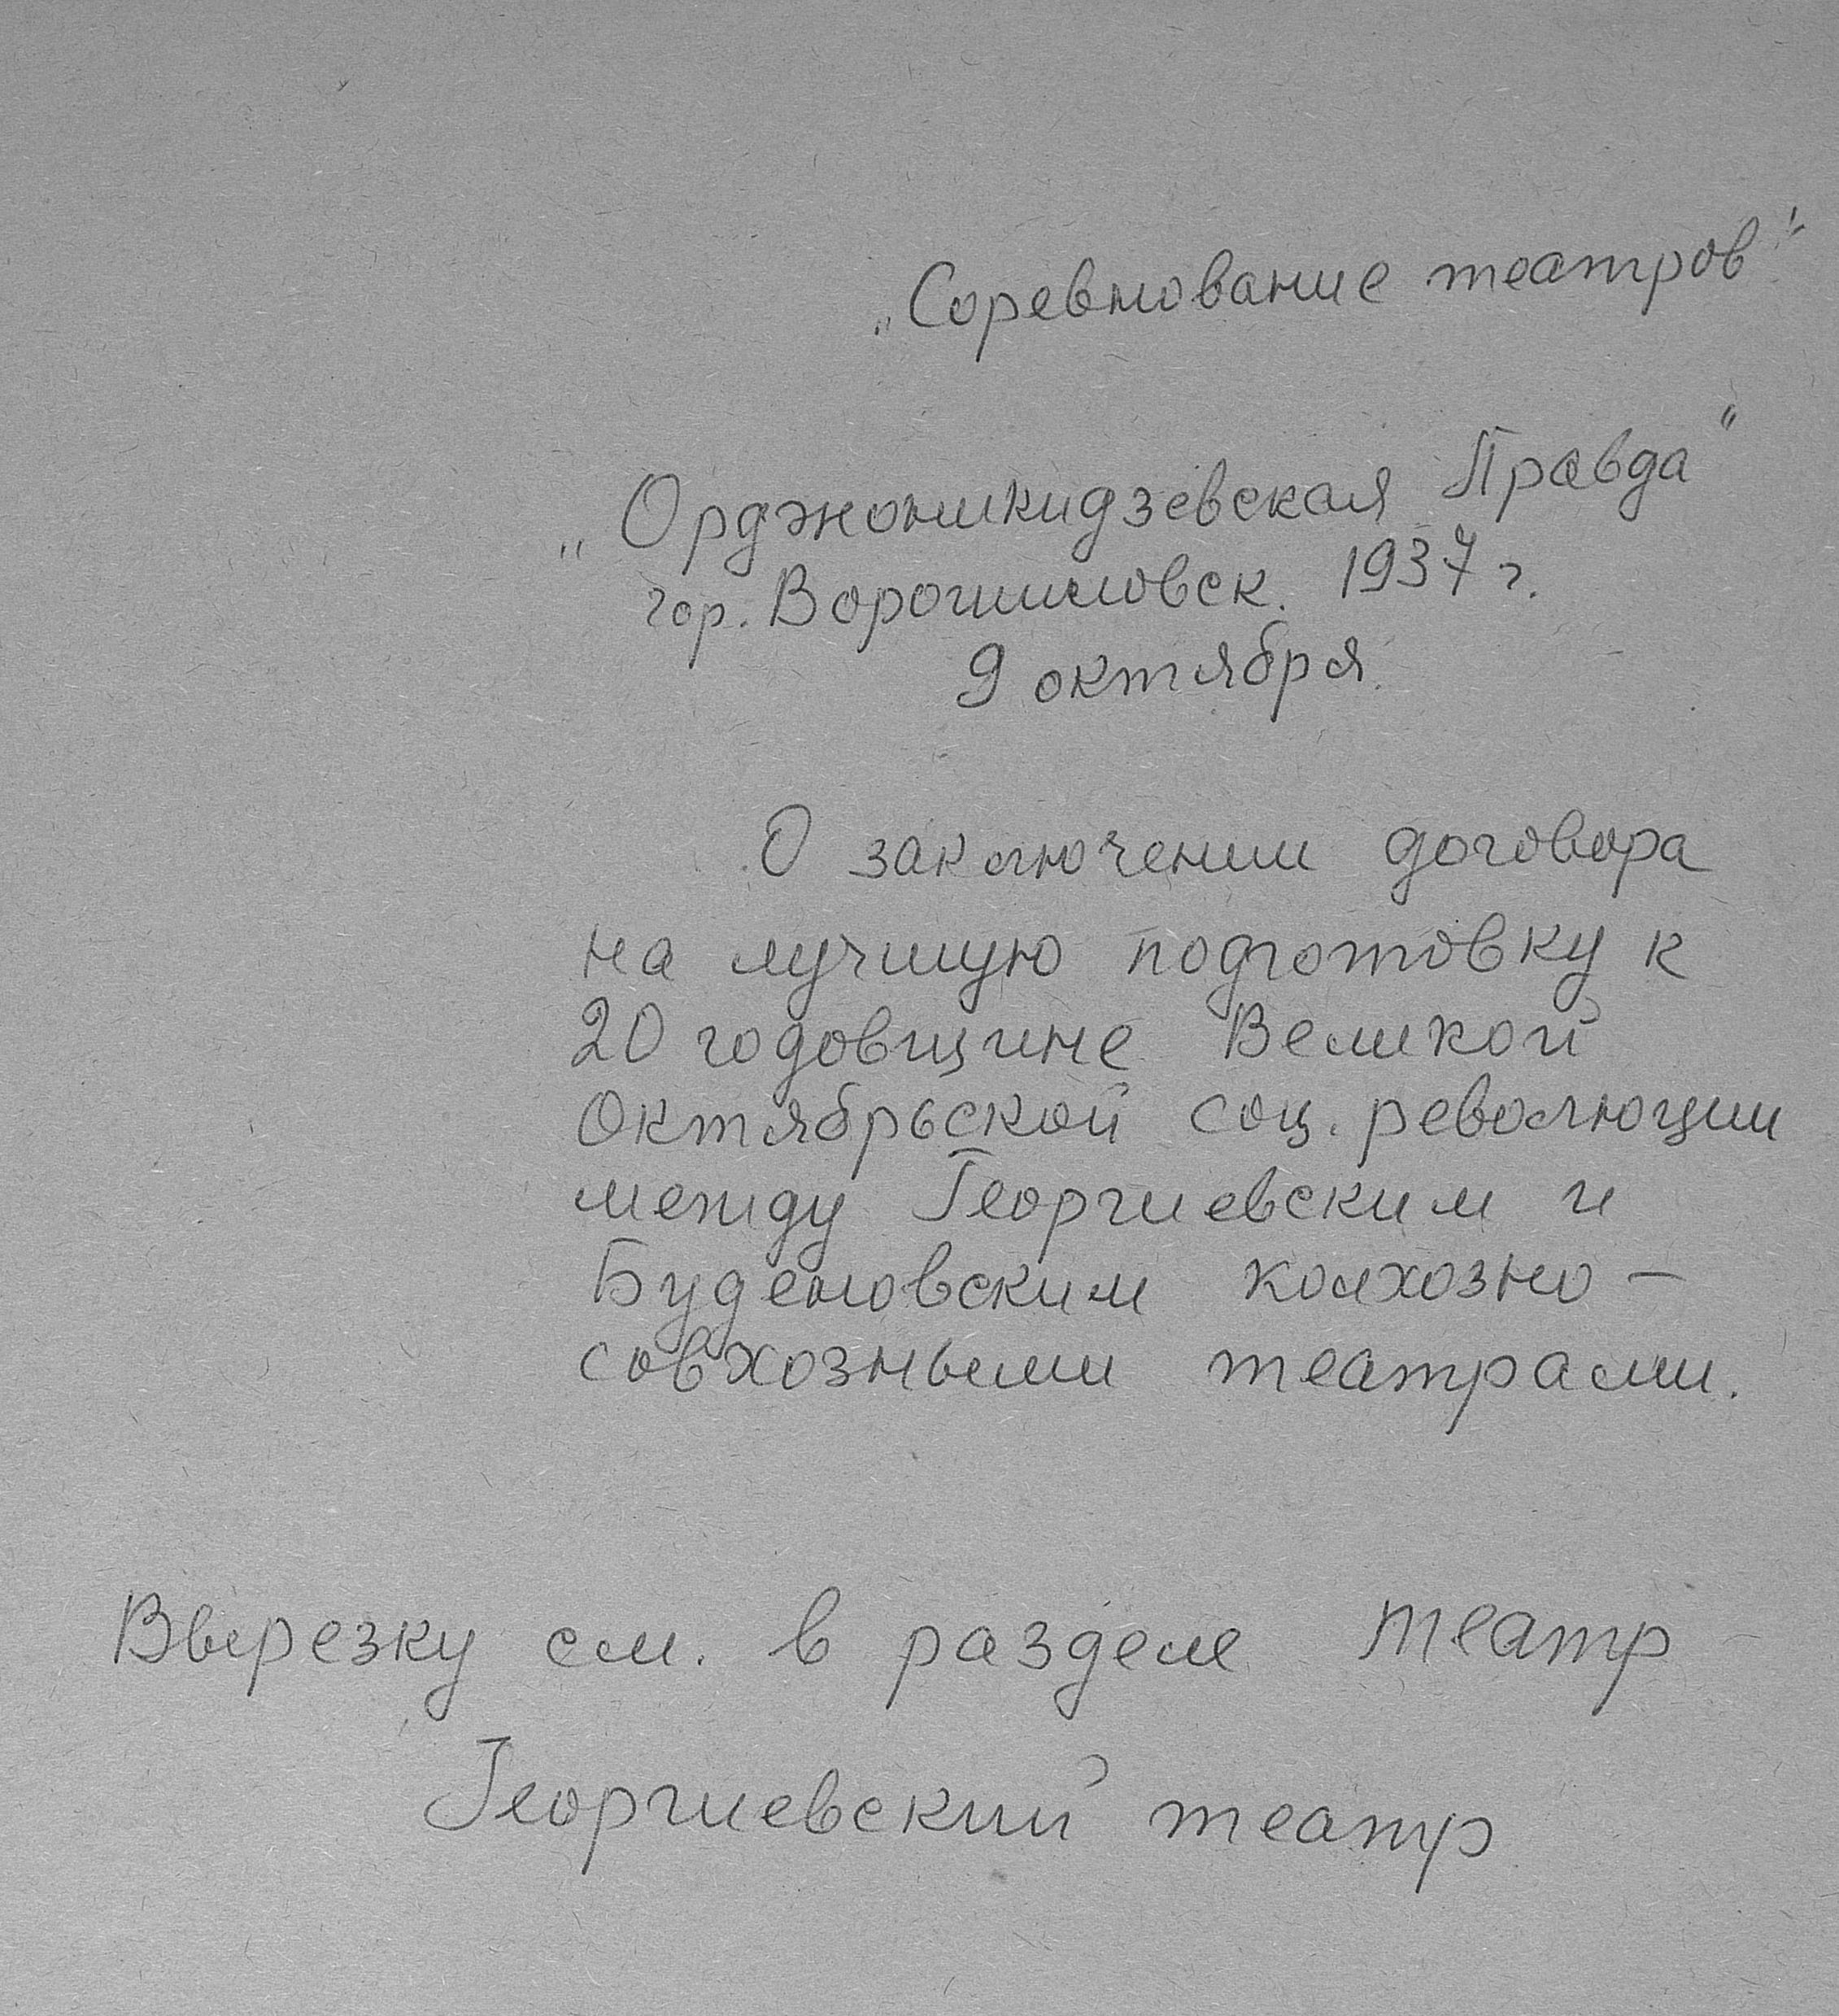 „Соревнование театров".
„Орджоникидзевская Правда"
гор. Ворошиловск. 1937 г.
9 октября.
О заключении договора
на лучшую подготовку к
20 годовщине Великой
Октябрьской соц. революции
между Георгиевским и
Буденовским колхозно-
совхозными театрами.
Вырезку см. в разделе театр
Георгиевский театр